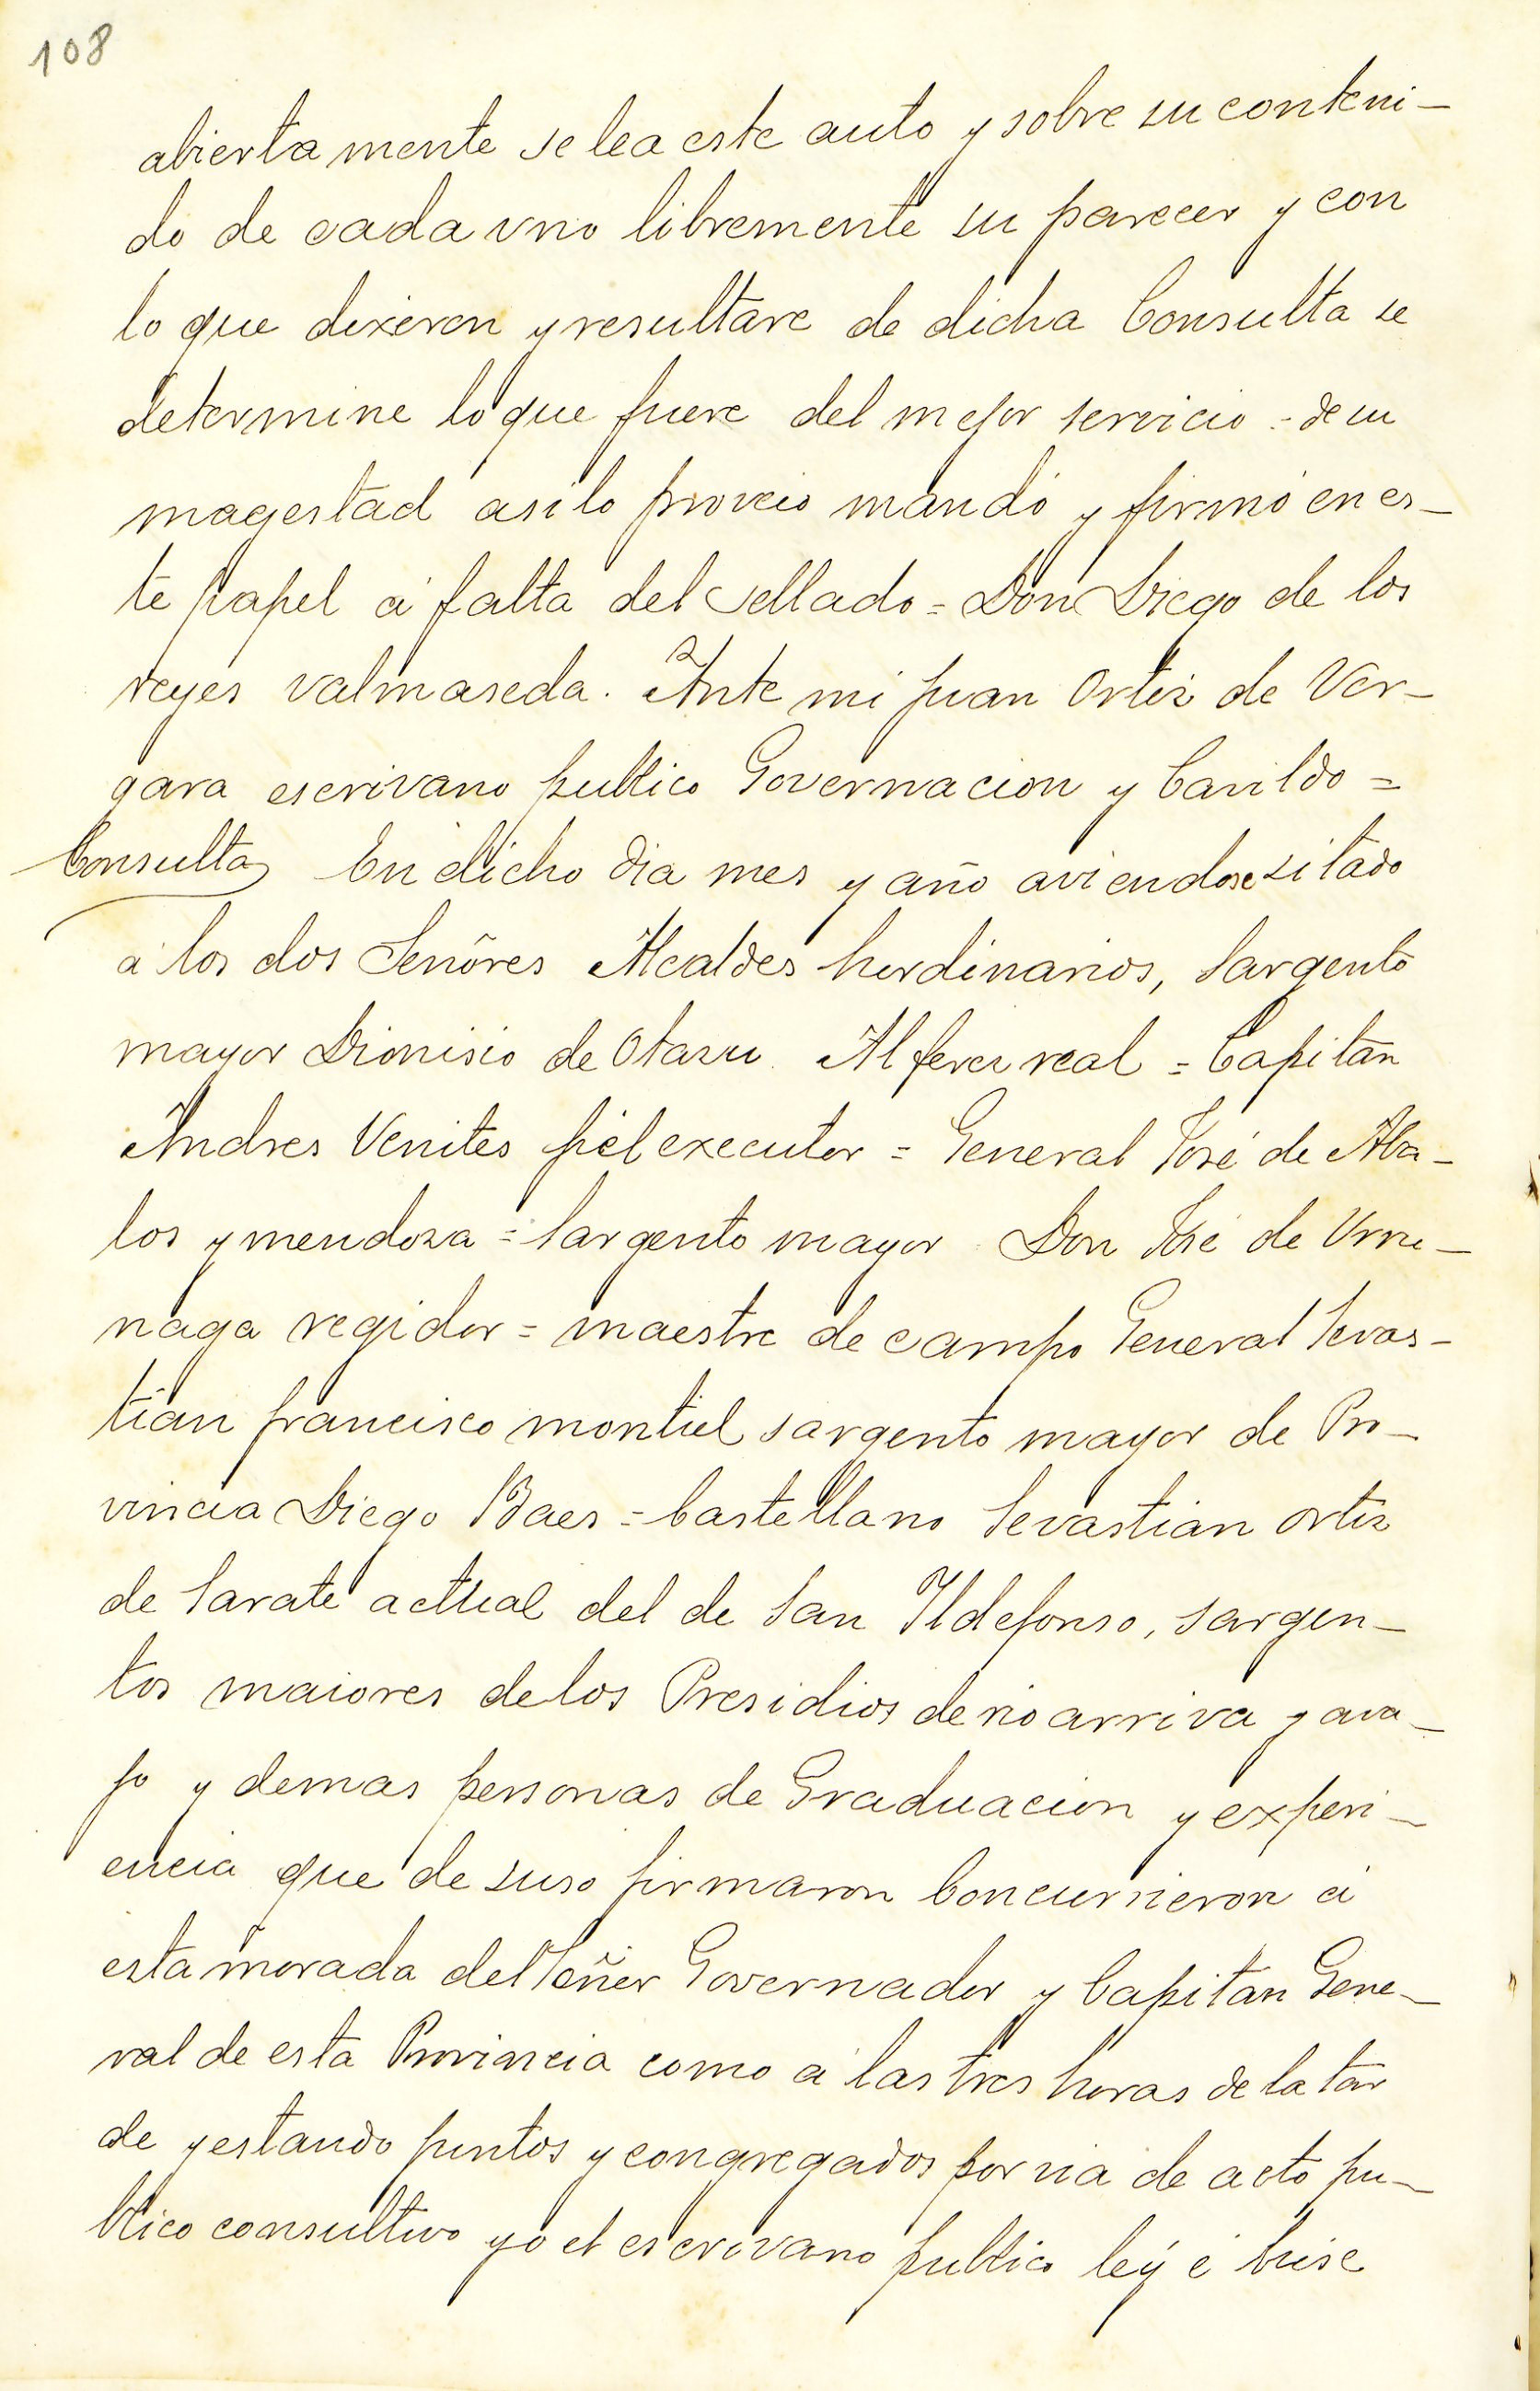 108
abierta mente se lea este auto y sobre su conteni-
do de cada vno libremente su parecer y con
lo que dixeren y resultare de dicha Consulta se
determine lo que fuere del mejor servicio - de su
magestad asi lo proveio mandó y firmó en es-
te papel á falta del Sellado = Don Diego de los
reyes valmaseda. Ante mi Juan Ortiz de Ver-
gara escrivano publico Governacion y Cavildo =
Consulta En dicho dia mes y año aviendose sitado
a los dos Señores Alcaldes hordinarios, Sargento
mayor Dionisio de Otazu Alferez real = Capitan
Andres Venites fiel executor = General José de Aba-
los y mendoza = Sargento mayor Don José de Vrru-
naga regidor = maestre de campo General Sevas-
tian francisco montiel sargento mayor de Pro-
vincia Diego Baes = Castellano Sevastian ortiz
de Sarate actual del de San Ildefonso, sargen-
tos maiores de los Presidios de rio arriva y ava-
jo y demas personas de Graduacion y experi-
encia que de suso firmaron Concurrieron á
esta morada del Señor Governador y Capitan Gene-
ral de esta Provincia como a las tres horas de la tar
de y estando juntos y congregados por via de acto pu-
blico consultivo yo el escrivano publico leý é hise